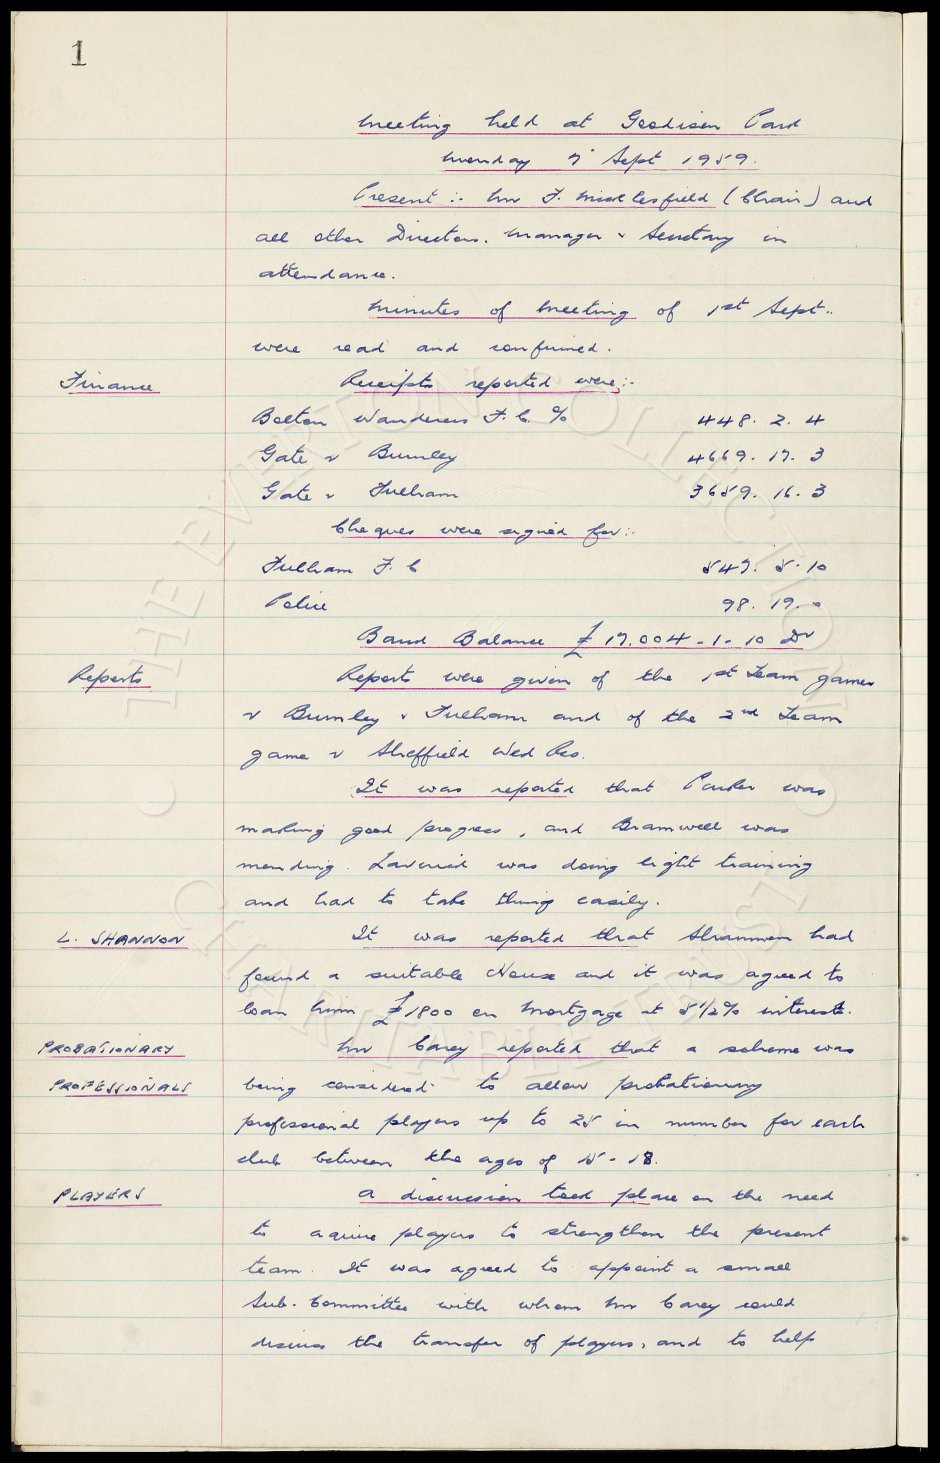 1
Meeting held at Goodison Park
Monday 7th Sept 1959.
Present :- Mr F. Micklesfield (Chair) and
all other Directors. Manager & Secretary in
attendance.
Minutes of Meeting of 1st Sept..
were read and confirmed.
Finance Receipts reported were:-
Bolton Wanderers F.C. % 448. 2. 4
Gate v Burnley 4669. 17. 3
Gate v Fulham 3659. 16. 3
Cheques were signed for:-
Fulham F.C 547. 5. 10
Police 98. 19. 0
Bank Balance £17.004-1-10 Dr
Reports Reports were given of the 1st Team games
v Burnley & Fulham and of the 2nd Team
game v Sheffield Wed Res.
It was reported that Parker was
making good progress, and Bramwell was
mending. Laverick was doing light training
and had to take things easily.
L. SHANNON It was reported that Shannon had
found a suitable House and it was agreed to
loan him £1800 on Mortgage at 5 1/2% interest.
PROBATIONARY Mr Carey reported that a scheme was
PROFESSIONALS being considered to allow probationary
professional players up to 25 in number for each
club between the ages of 15-18.
PLAYERS A discussion took place on the need
to aquire players to strengthen the present
team. It was agreed to appoint a small
Sub-Committee with whom Mr Carey could
discuss the transfer of players, and to help
THE EVERTON COLLECTION
CHARITABLE TRUST